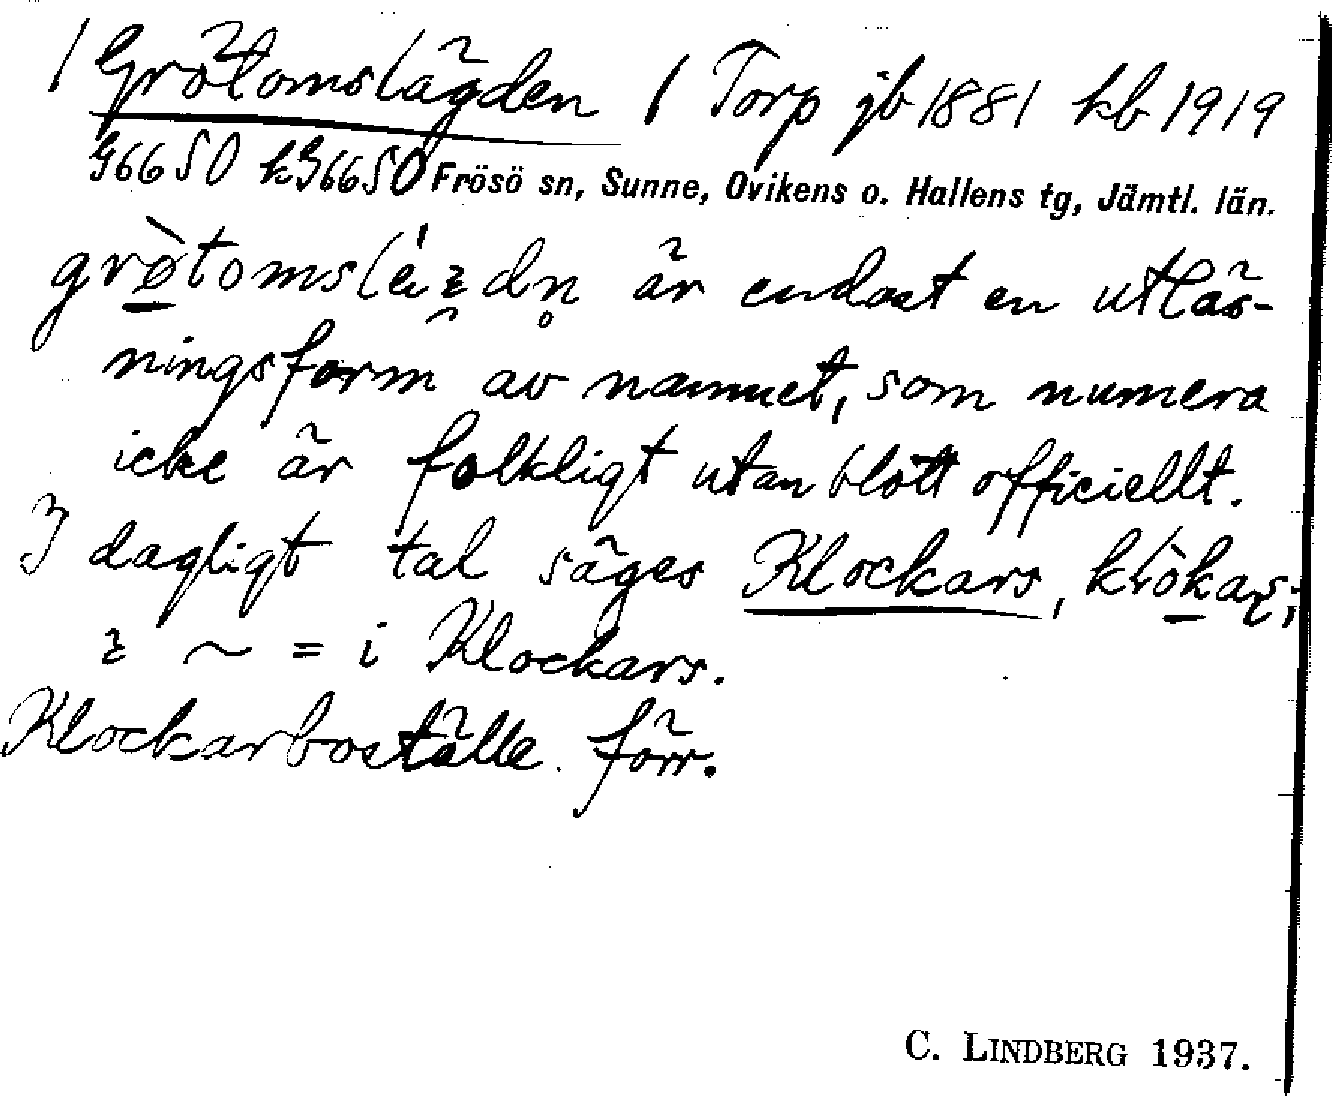 / Grötomslägden / Torp jb 1881 kb 1919
G66 S0 kG66S0 Frösö sn, Sunne, Ovikens o. Hallens tg, Jämtl. län.
är endast en utläs-
ningsform av namnet, som numera
icke är folkligt utan blott officiellt.
I dagligt tal säges Klockars,
= i Klockars.
Klockarboställe förr.
C. LINDBERG 1937.